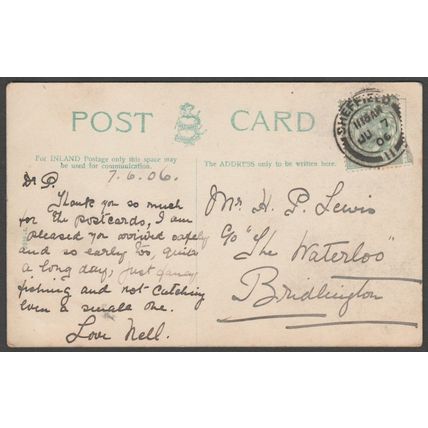 POST CARD
For INLAND Postage only this space may
be used for communication.
The ADDRESS only to be written here.
SHEFFIELD
11 15 AM
JU 7
06
11
7.6.06.
Dr P.
Thank you so much
for the postcards, I am
pleased you arrived safely
and so early too, quite
a long day, just fancy
fishing and not catching
even a small one.
Love Nell.
Mr H. P. Lewis
c/o "The Waterloo"
Bridlington